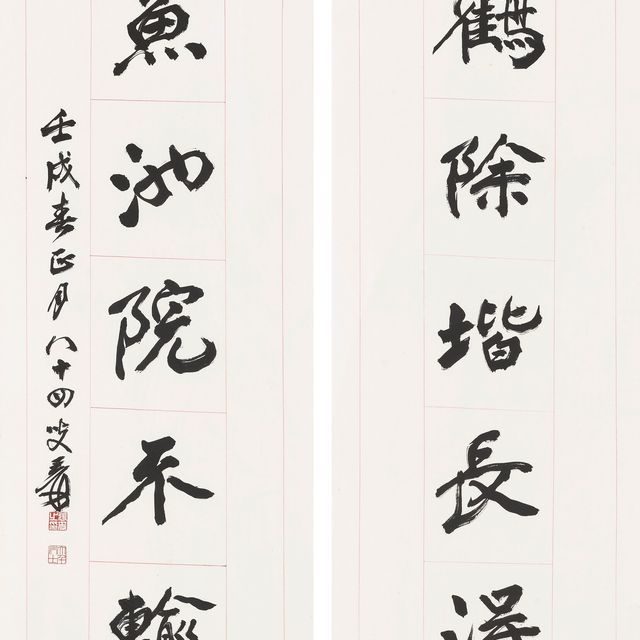 鶴除堦長
魚池院不輸
壬戌春正月八十四叟爰